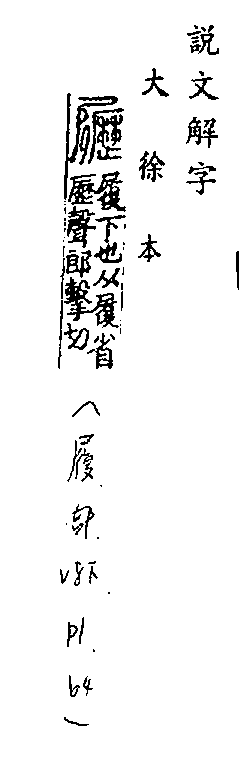 説文解字
大徐本
履下也从履省
歷聲郎擊切
(履部. v8下. p1. 64)